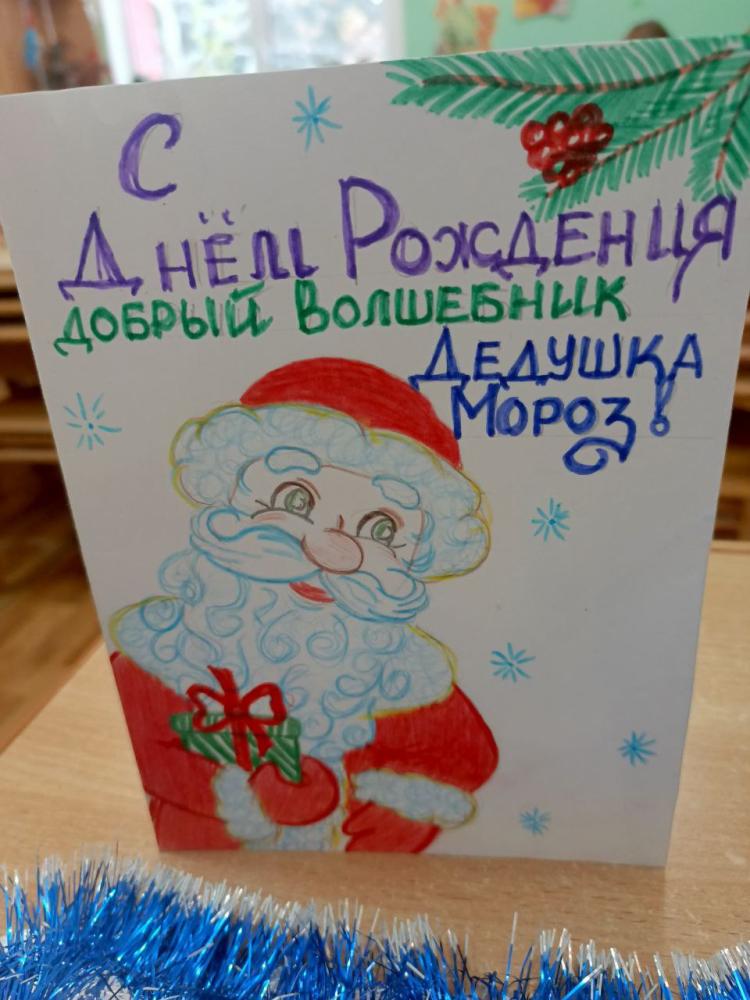 С
Днём Рождения
добрый Волшебник
Дедушка
Мороз!